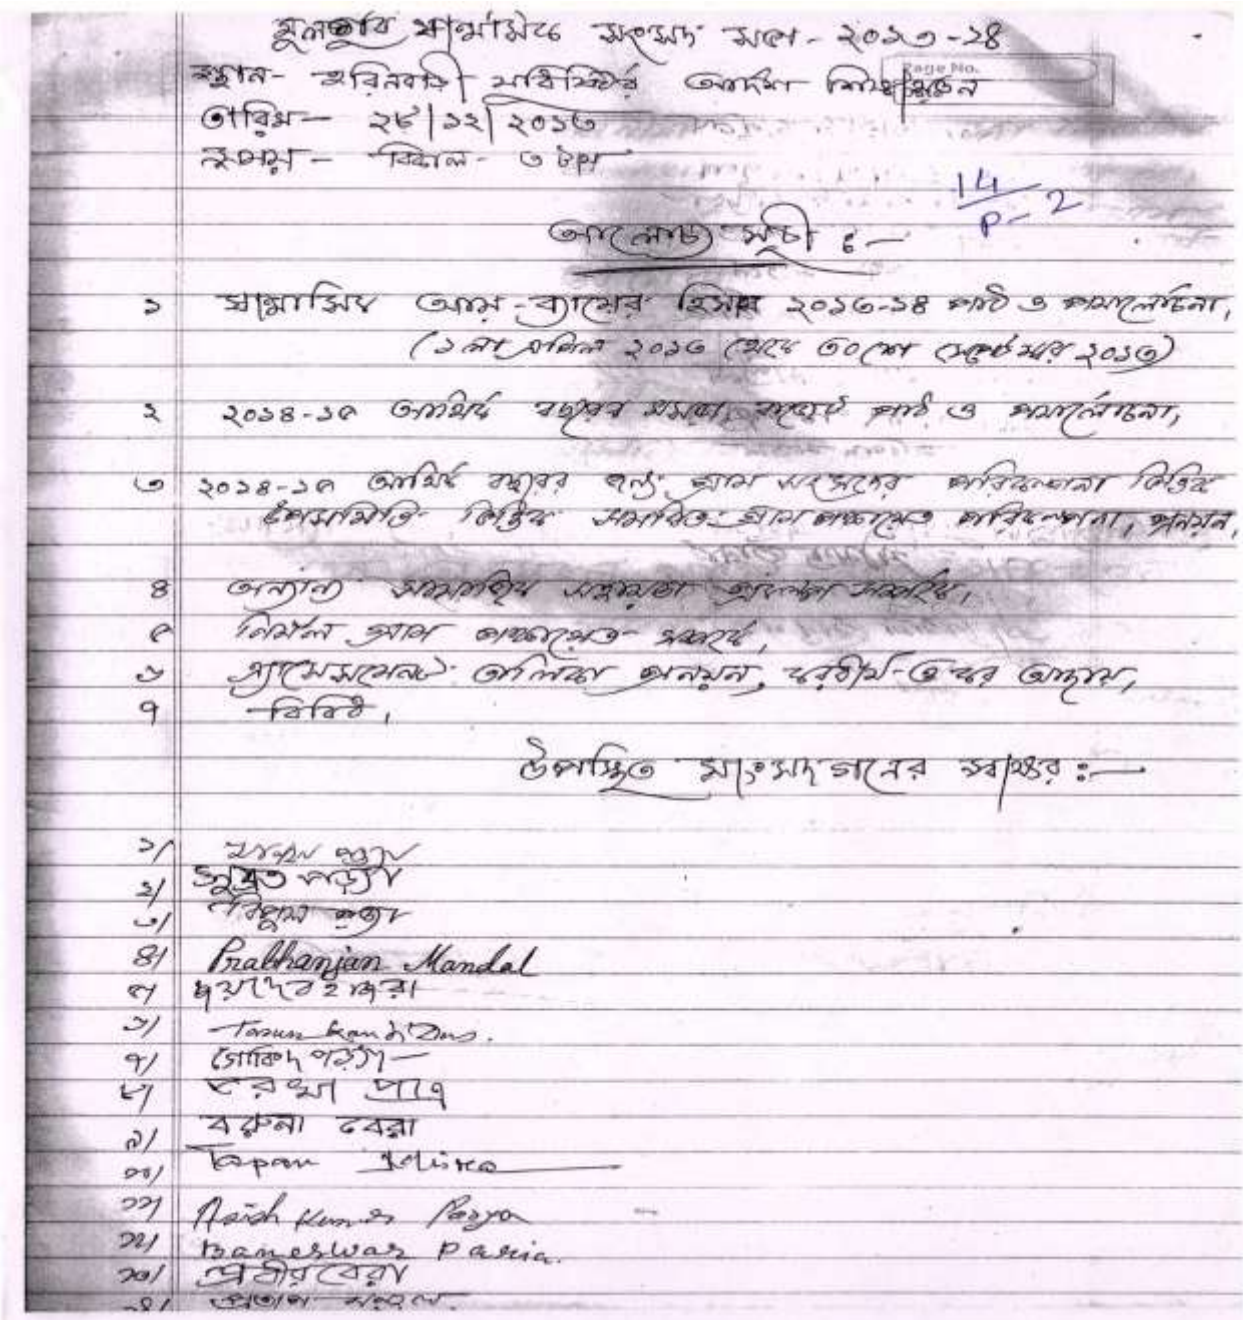 মুলতুবি ষান্মাসিক সংসদ সভা - ২০১৩-১৪
Page No.
স্থান - হরিনবাড়ী আদর্শ শিক্ষা
তারিখ - ২৮/১২/২০১৩
সময় - বিকাল - ৩ টা
14
P-2
আলোচ্য সূচী ঃ-
১ ষান্মাসিক আয়-ব্যায়ের হিসাব ২০১৩-১৪ পাঠ ও পর্যালোচনা,
(১লা এপ্রিল ২০১৩ থেকে ৩০শে সেপ্টেম্বর ২০১৩)
২ ২০১৪-১৫ আর্থিক বছরের খসড়া বাজেট পাঠ ও পর্যালোচনা,
৩ ২০১৪-১৫ আর্থিক বছরের জন্য গ্রাম সংসদের পরিকল্পনা ভিত্তিক
উপসমিতি ভিত্তিক গ্রাম পঞ্চায়েত পরিকল্পনা, প্রনয়ন,
৪ অন্যান্য সামাজিক সহায়তা প্রকল্প সম্পর্কে,
৫ নির্মল গ্রাম পঞ্চায়েত সম্পর্কে,
৬ এ্যাসেসমেন্ট তালিকা প্রনয়ন, করধার্য ও কর আদায়,
৭ বিবিধ,
উপস্থিত সাংসদগনের স্বাক্ষর ঃ-
১/
২/ সুব্রত পড়্যা
৩/
৪/ Prabhanjan Mandal
৫/ জয়দেব হাজরা
৬/ Tarun Kanti Das.
৭/ গোবিন্দ পড়্যা
৮/ পাত্র
৯/ বরুনা বেরা
১০/ Tapan
১১/ Asish Kumar Parya
১২/ Baneswar Paria.
১৩/ প্রবীর বেরা
১৪/ প্রতাপ মন্ডল